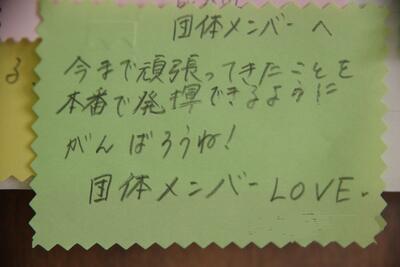 団体メンバーへ
今まで頑張ってきたことを
本番で発揮できるように
がんばろうね!
団体メンバーLOVE.
る